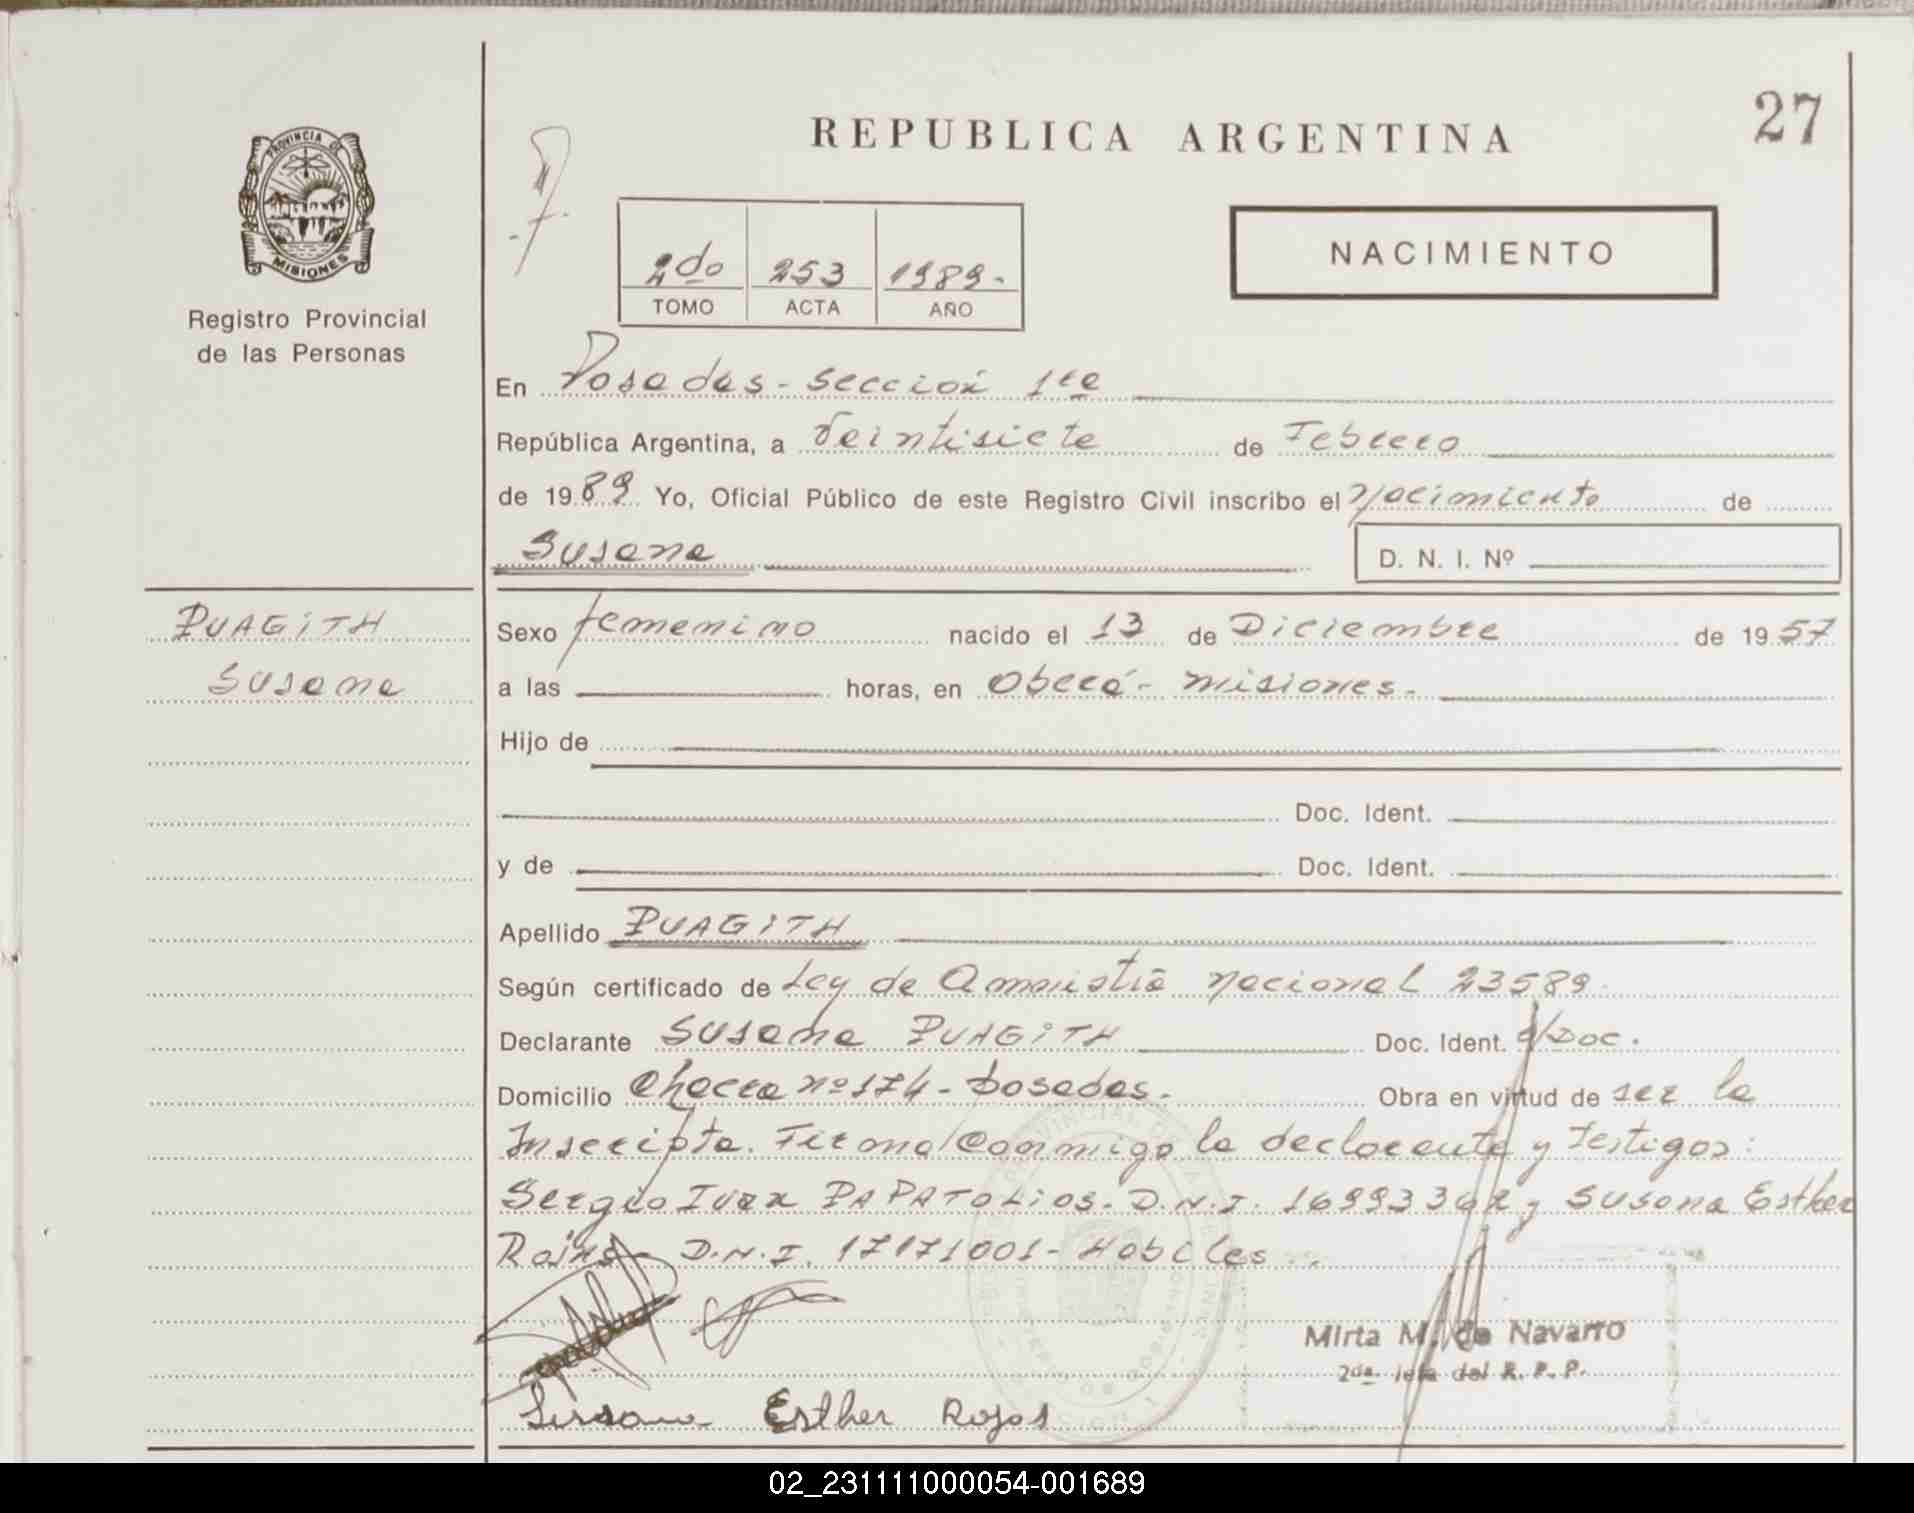 REPUBLICA ARGENTINA
27
PROVINCIA DE
MISIONES
Registro Provincial
de las Personas
2do 253 1989.-
TOMO ACTA AÑO
NACIMIENTO
En Posadas - Sección 1ra
República Argentina, a Veintisiete de Febrero
de 1989 Yo, Oficial Público de este Registro Civil inscribo el Nacimiento de
Susana
D. N. I. Nº
PUAGITH
Susana
Sexo femenino nacido el 13 de Diciembre de 1957
a las horas, en Oberá - Misiones.-
Hijo de
Doc. Ident.
y de Doc. Ident.
Apellido PUAGITH
Según certificado de Ley de Amnistía Nacional 23589.
Declarante Susana PUAGITH Doc. Ident. S/Doc.
Domicilio Chacra nº 174 - Posadas. Obra en virtud de ser la
Inscripta. Firma conmigo la declarante y testigos:
Sergio Ivan PAPATOLIOS - D.N.I. 16993362 y Susana Esther
Rojas - D.N.I. 17171001 - Habiles.
Mirta M. de Navarro
2da Jefa del R. P. P.
Susana Esther Rojas
02_231111000054-001689